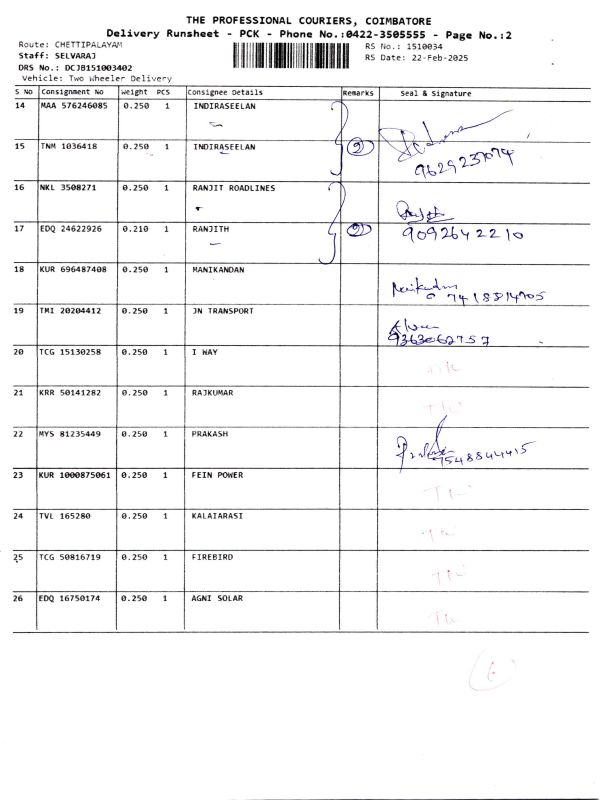 THE PROFESSIONAL COURIERS, COIMBATORE
Delivery Runsheet - PCK - Phone No.:0422-3505555 - Page No.:2
Route: CHETTIPALAYAM RS No.: 1510034
Staff: SELVARAJ RS Date: 22-Feb-2025
DRS No.: DCJB151003402
Vehicle: Two Wheeler Delivery
S No Consignment No Weight PCS Consignee Details Remarks Seal & Signature
14 MAA 576246085 0.250 1 INDIRASEELAN
15 TNM 1036418 0.250 1 INDIRASEELAN 2
9629237074
16 NKL 3508271 0.250 1 RANJIT ROADLINES
17 EDQ 24622926 0.210 1 RANJITH 2 9092642210
18 KUR 696487408 0.250 1 MANIKANDAN
Manikandan
7418814905
19 TMI 20204412 0.250 1 JN TRANSPORT
9363062757
20 TCG 15130258 0.250 1 I WAY
21 KRR 50141282 0.250 1 RAJKUMAR
22 MYS 81235449 0.250 1 PRAKASH
7548844415
23 KUR 1000875061 0.250 1 FEIN POWER
24 TVL 165280 0.250 1 KALAIARASI
25 TCG 50816719 0.250 1 FIREBIRD
26 EDQ 16750174 0.250 1 AGNI SOLAR
6